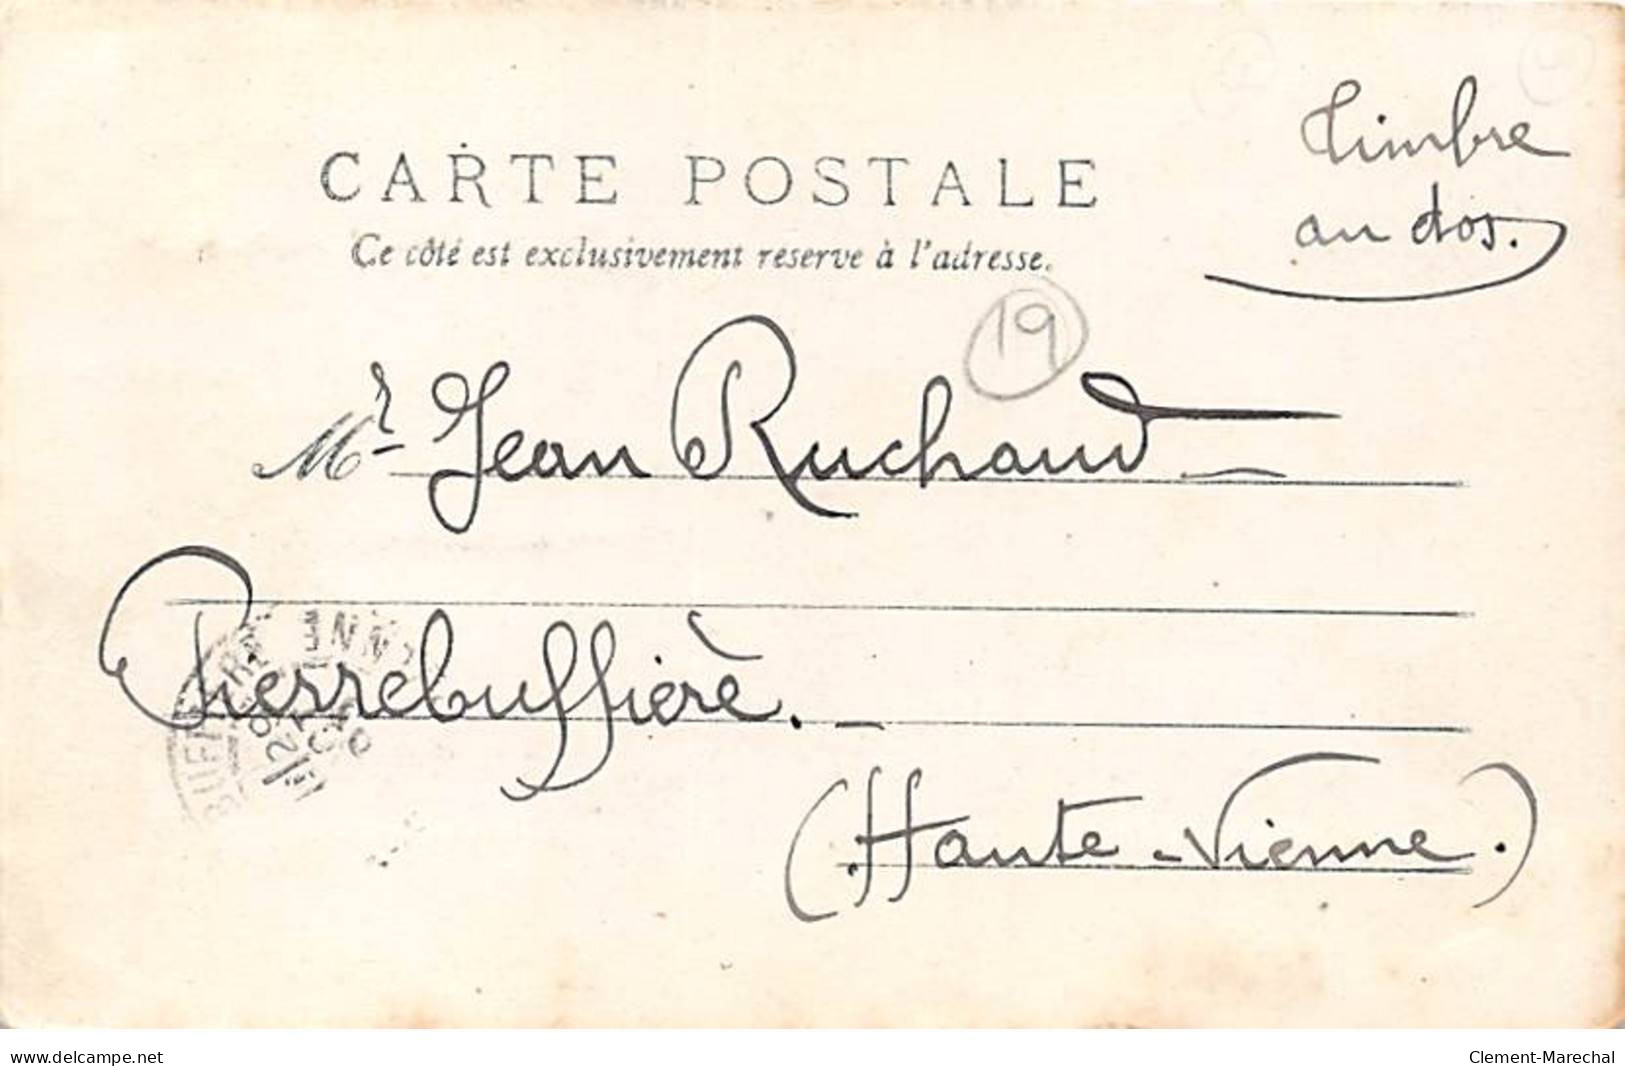 CARTE POSTALE
Ce côté est exclusivement réservé à l'adresse.
Timbre
au dos.
19
Mr Jean Ruchaud
Pierrebuffière.
(Haute-Vienne.)
www.delcampe.net
Clement-Marechal